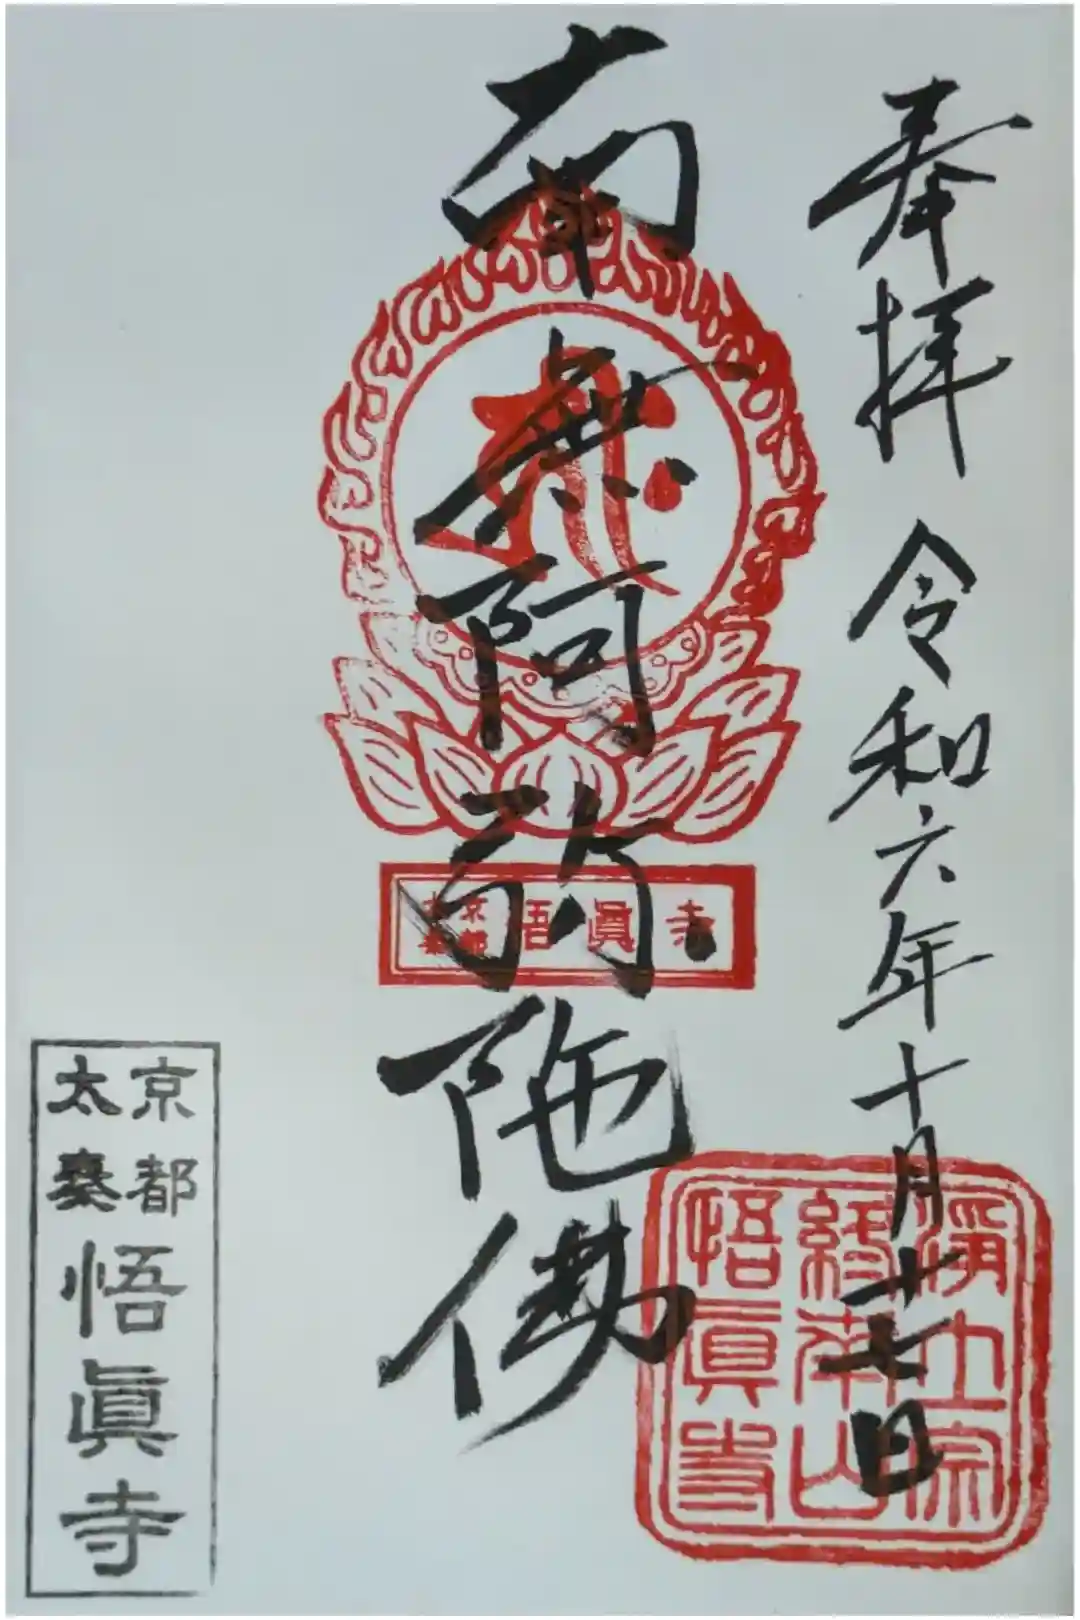 奉拝 令和六年十月十七日
淨土宗
終南山
悟眞寺
南無阿弥陀佛
𑖮𑖿𑖨𑖱𑖾
京都
太秦
悟眞寺
京都
太秦
悟眞寺